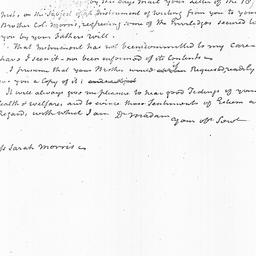 by this days mail your Letter of the 10th
Inst, on the Subject of an Instrument of writing from you to your
Brother Col. Morris, respecting some of the Privileges secured to
you by your Fathers Will.
That Instrument has not been committed to my Care
have I seen it - nor been informed of its Contents
I presume that your Mother would Request readily
give you a Copy of it
It will always give me pleasure to hear good Tidings of your
health & welfare and to evince those Sentiments of Esteem &
Regard, with which I am Dr Madam
your Ob Servt
Sarah Morris